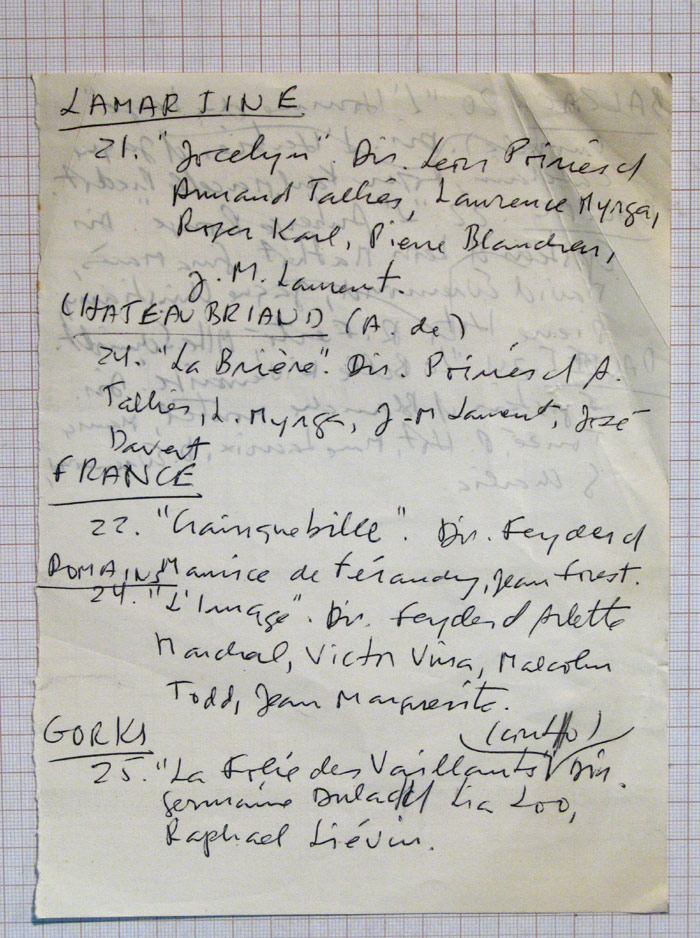 LAMARTINE
21. "Jocelyn". Dir. Léon Poiriés d
Armand Talliés, Laurence Myrga,
Roger Karl, Pierre Blanchar,
J. M. Laurent.
CHATEAUBRIAND (A de)
24. "La Brière". Dir. Poiriés d A.
Talliés, L. Myrga, J-M Laurent, José
Davert
FRANCE
22. "Crainquebille". Dir. Feyder d
Maurice de Féraudy, Jean Forest.
ROMAINS
24. "L'Image". Dir. Feyder d Arlette
Marchal, Victor Vina, Malcolm
Todd, Jean Margueritte.
GORKI
25. "La Folie des Vaillants" Dir.
Germaine Dulac d Lia Loo,
Raphael Liévin.